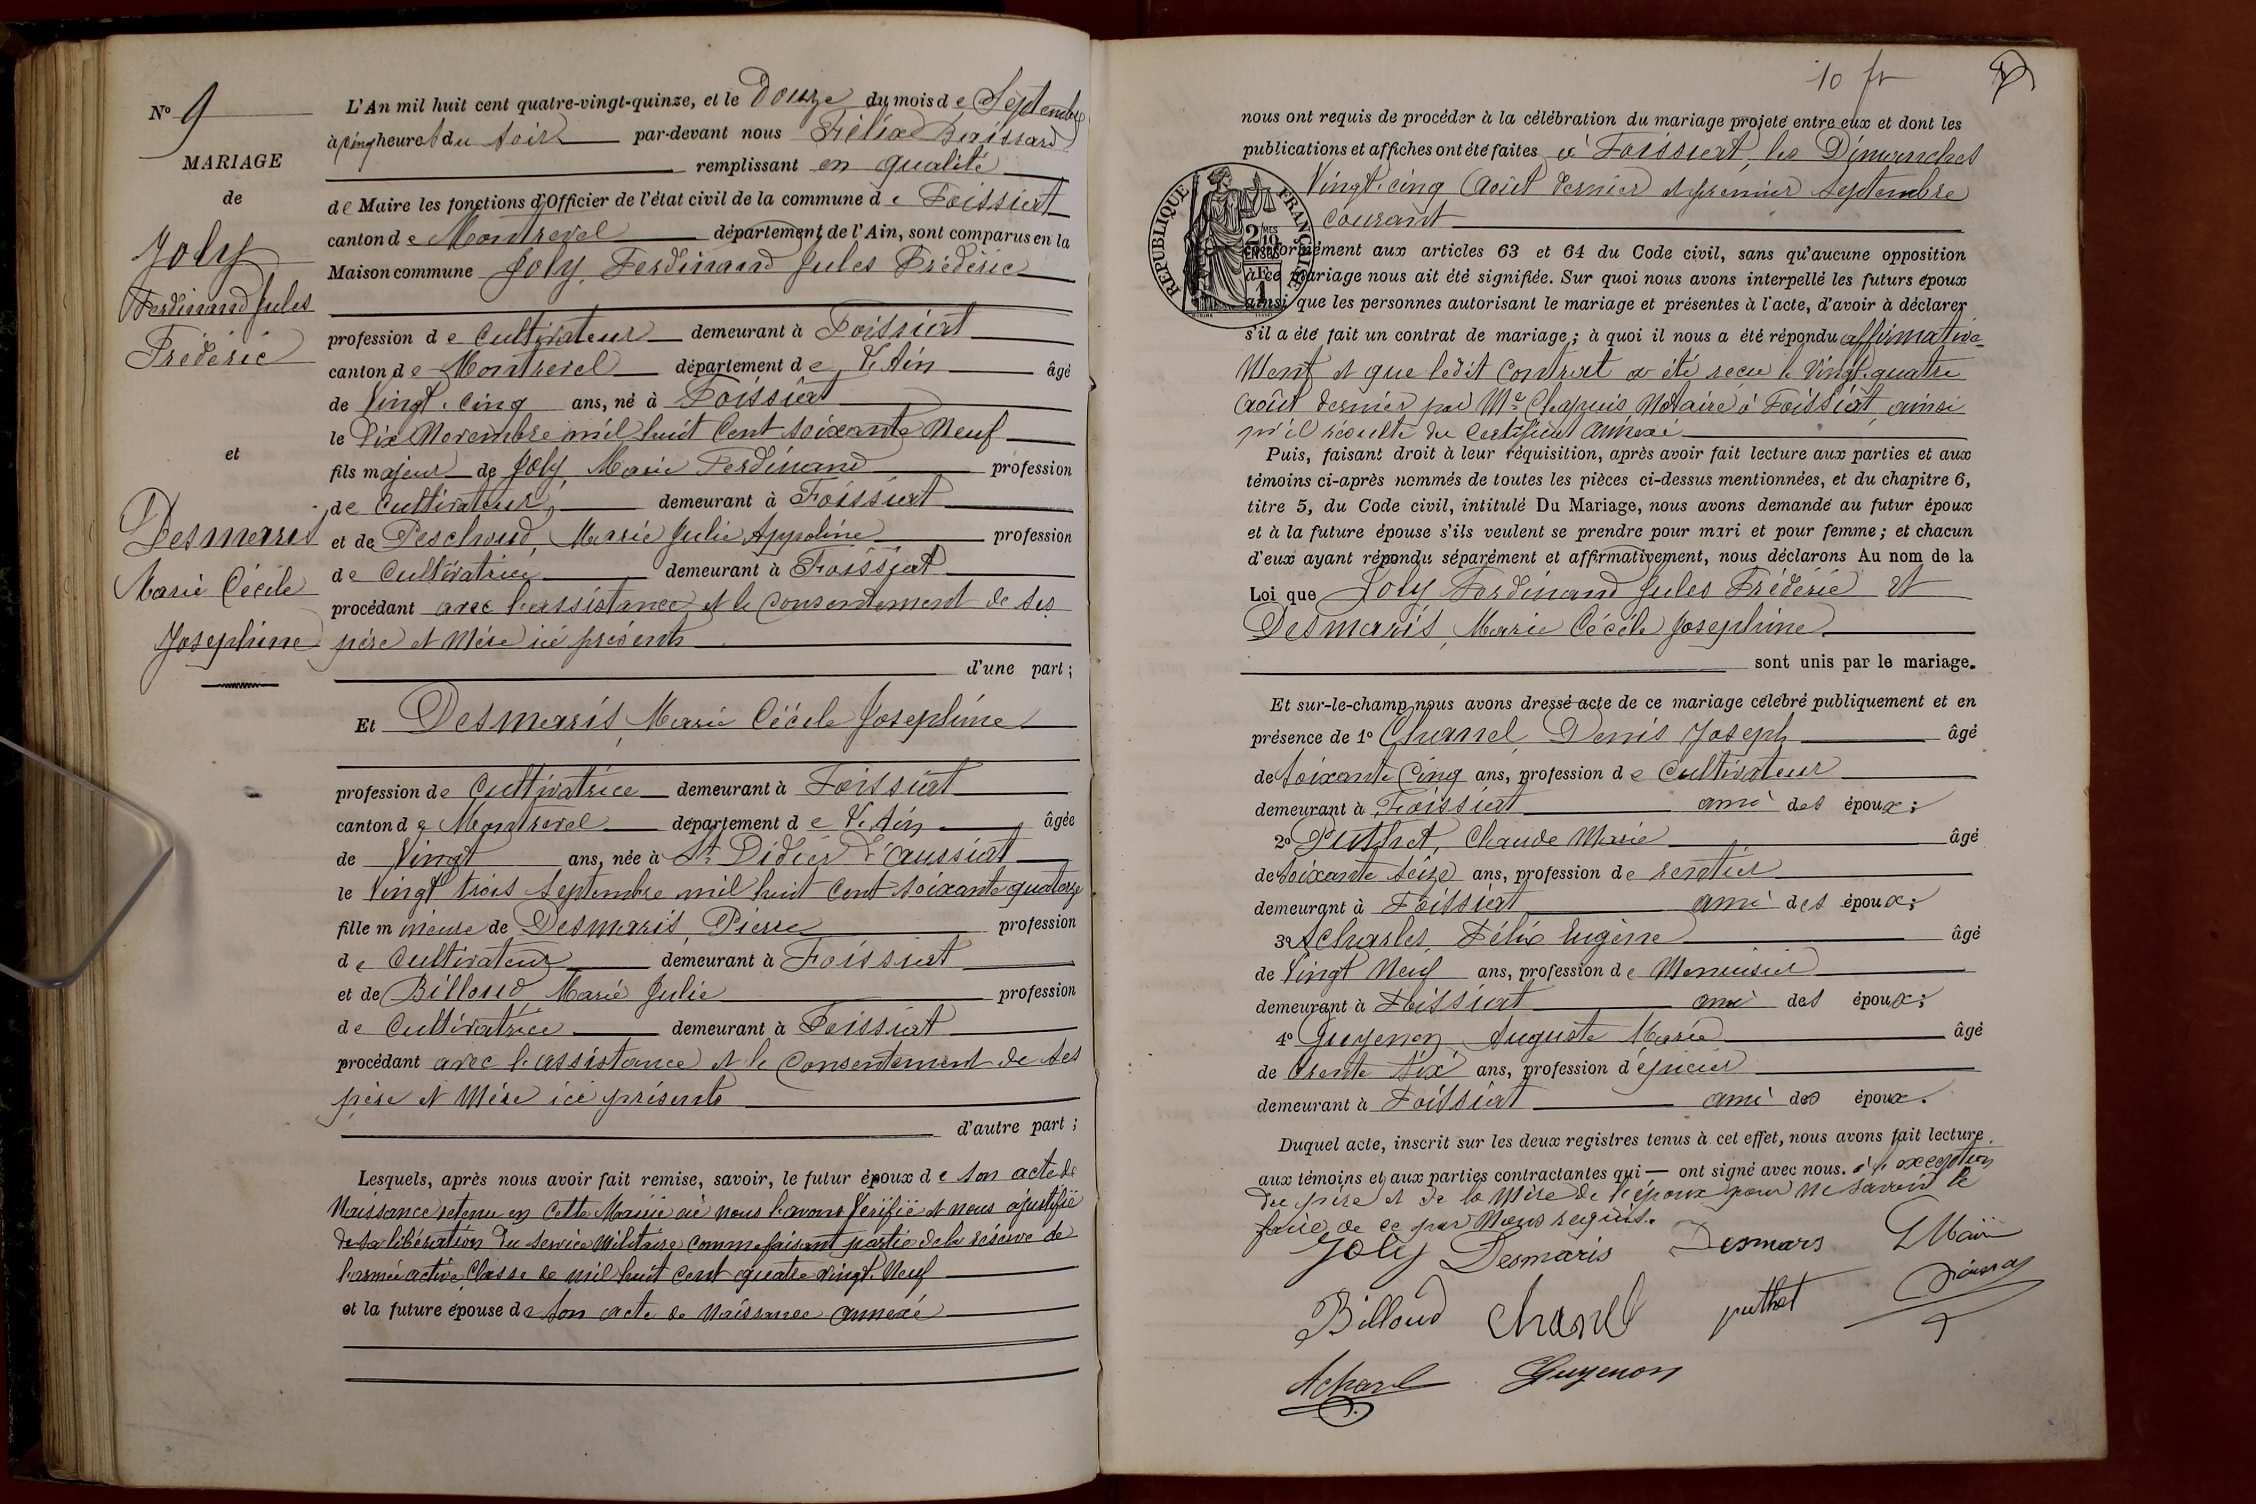 N° 9
MARIAGE
de
Joly
Ferdinand Jules
Frédéric
et
Desmaris
Marie Cécile
Josephine
L'An mil huit cent quatre-vingt-quinze, et le Douze du mois de Septembre
à cinq heures du soir par-devant nous Félix
remplissant en qualité
de Maire les fonctions d'Officier de l'état civil de la commune de Foissiat
canton de Montrevel département de l'Ain, sont comparus en la
Maison commune Joly, Ferdinand Jules Frédéric
profession de Cultivateur demeurant à Foissiat
canton de Montrevel département de l'Ain âgé
de Vingt-Cinq ans, né à Foissiat
le Dix Novembre mil huit Cent soixante Neuf
fils majeur de Joly, Marie Ferdinand profession
de Cultivateur, demeurant à Foissiat
et de Peschoud, Marie Julie Appoline profession
de Cultivatrice demeurant à Foissiat
procédant avec l'assistance et le Consentement de ses
père et Mère ici présents
d'une part;
Et Desmaris, Marie Cécile Josephine
profession de Cultivatrice demeurant à Foissiat
canton de Montrevel département de l'Ain âgée
de Vingt ans, née à St Didier d'aussiat
le Vingt trois Septembre mil huit Cent soixante quatorze
fille mineure de Desmaris, Pierre profession
de Cultivateur demeurant à Foissiat
et de Billoud, Marie Julie profession
de Cultivatrice demeurant à Foissiat
procédant avec l'assistance et le Consentement de ses
père et Mère ici présents
d'autre part;
Lesquels, après nous avoir fait remise, savoir, le futur époux de son acte de
Naissance retenu en Cette Mairie où nous l'avons Vérifié et nous a justifié
de sa libération du service Militaire comme faisant partie de la réserve de
l'armée active, Classe de mil huit Cent quatre vingt-Neuf
et la future épouse de son acte de Naissance annexé
10 fr
nous ont requis de procéder à la célébration du mariage projeté entre eux et dont les
publications et affiches ont été faites à Foissiat, les Dimanches
Vingt-cinq Août dernier et premier Septembre
courant
RÉPUBLIQUE FRANÇAISE
2 MES 1/10
EN SUS
1
conformément aux articles 63 et 64 du Code civil, sans qu'aucune opposition
à ce mariage nous ait été signifiée. Sur quoi nous avons interpellé les futurs époux
ainsi que les personnes autorisant le mariage et présentes à l'acte, d'avoir à déclarer
s'il a été fait un contrat de mariage; à quoi il nous a été répondu affirmative-
Ment et que ledit Contrat a été reçu le Vingt-quatre
Août dernier par Me Chapuis Notaire à Foissiat, ainsi
qu'il résulte du Certificat annexé
Puis, faisant droit à leur réquisition, après avoir fait lecture aux parties et aux
témoins ci-après nommés de toutes les pièces ci-dessus mentionnées, et du chapitre 6,
titre 5, du Code civil, intitulé Du Mariage, nous avons demandé au futur époux
et à la future épouse s'ils veulent se prendre pour mari et pour femme; et chacun
d'eux ayant répondu séparément et affirmativement, nous déclarons Au nom de la
Loi que Joly Ferdinand Jules Frédéric et
Desmaris, Marie Cécile Josephine
sont unis par le mariage.
Et sur-le-champ nous avons dressé acte de ce mariage célébré publiquement et en
présence de 1° Charnel, Denis Joseph âgé
de Soixante Cinq ans, profession de Cultivateur
demeurant à Foissiat ami des époux;
2° Puthet, Claude Marie âgé
de Soixante Seize ans, profession de rentier
demeurant à Foissiat ami des époux;
3° Acharles, Félix Eugène âgé
de Vingt Neuf ans, profession de Menuisier
demeurant à Foissiat ami des époux;
4° Guyenon Auguste Marie âgé
de Trente Six ans, profession d'épicier
demeurant à Foissiat ami des époux.
Duquel acte, inscrit sur les deux registres tenus à cet effet, nous avons fait lecture
aux témoins et aux parties contractantes qui — ont signé avec nous. à l'exception
du père et de la Mère de l'époux pour ne savoir le
faire, de ce par Nous requis.
Joly Desmaris Desmars Le Maire
Billoud Chanel puthet
Acharl Guyenon